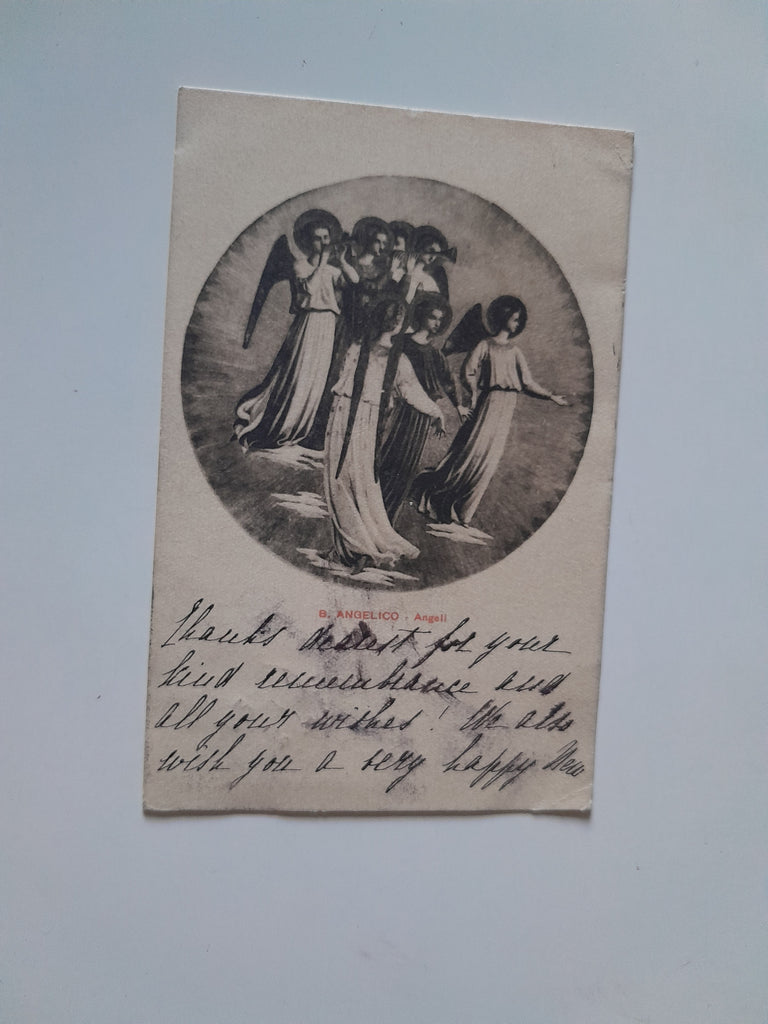 B. ANGELICO - Angeli
Thanks dearest for your
kind remembrance and
all your wishes! We also
wish you a very happy New